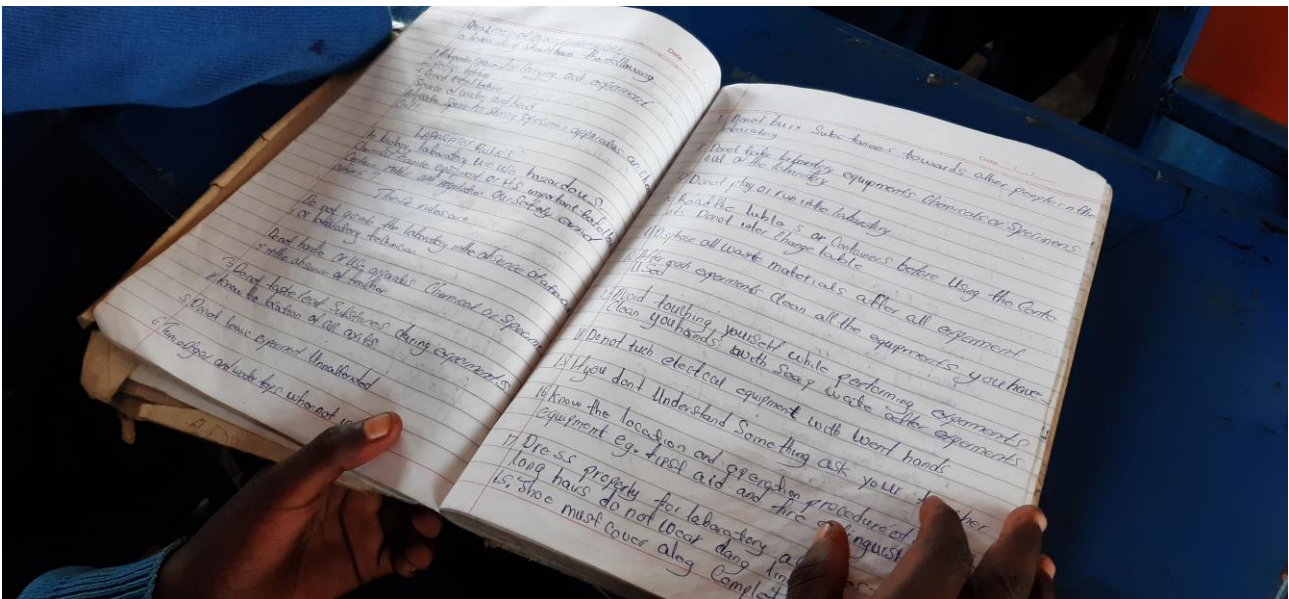 a laboratory should have the following
space for carrying out experiment
Good ventilation
Source of water and heat
space for storing specimen apparatus and
LABARATORY RULES
In biology laboratory we use hazardous
Certain rules and regulation our safety and
others
These rules are
Do not go in the laboratory in the absence of
or laboratory technician
Do not handle or use apparatus Chemical or Specim
s in the absence of teacher
3 Donot taste/eat Substances during experiments
4 Know the location of all exits
5 Donot leave experiment Unnattended
6 Turn off gas and water taps when not in
Date
Donot burn Subctances towards other people in the
laboratory
Date
Donot take laboratory equipments Chemicals or Specimens
out of the laboratory
9 Donot play or run in the laboratory
10 Read the lables or Containers before Using the Conte
nts Donot inter change lable
11 Dispose all waste materials after all experiment
12 After each experiments Clean all the equipments you have
Used
13 Avoid touching yourself while performing experiments
Clean you hands with soap after experiments
14 Donot tuch electical equipment with went hands
15 If you dont Understand Something ask your
16 Know the location and operation procedure of
equipment eg. first aid and fire
17 Dress properly for laboratory
long hairs do not wear dang
18. Shoe must cover